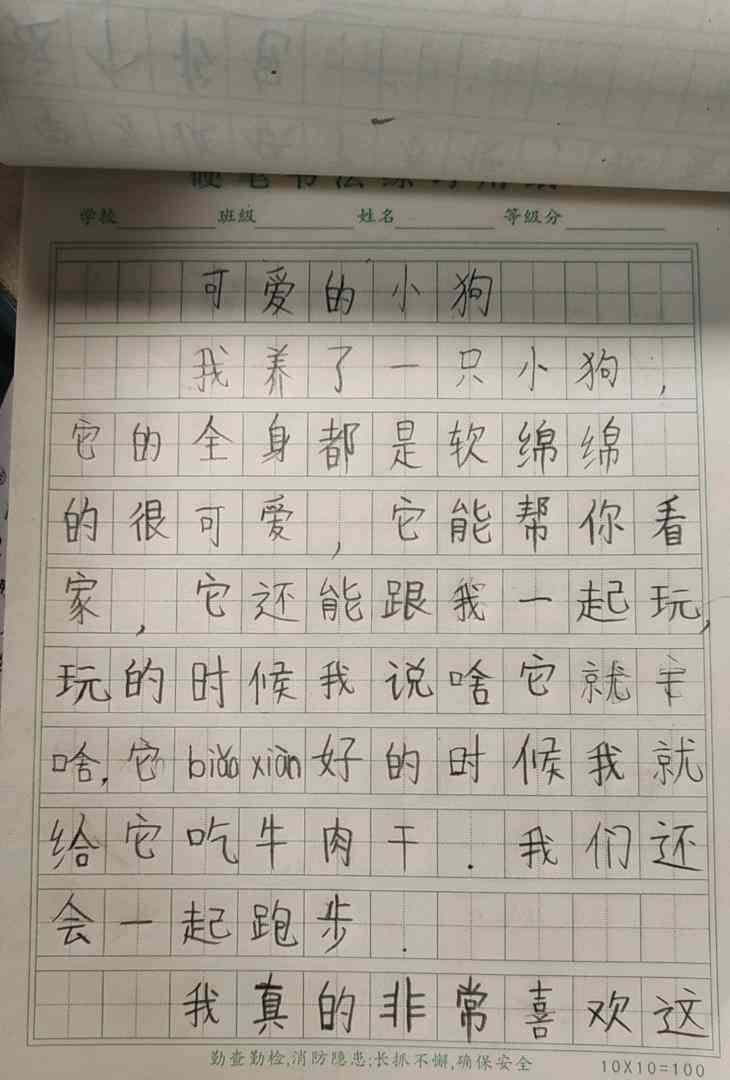 学校 班级 姓名 等级分
可爱的小狗
我养了一只小狗,
它的全身都是软绵绵
的很可爱,它能帮你看
家,它还能跟我一起玩,
玩的时候我说啥它就干
啥,它biǎo xiàn好的时候我就
给它吃牛肉干.我们还
会一起跑步.
我真的非常喜欢这
勤查勤检,消防隐患;长抓不懈,确保安全
10X10=100